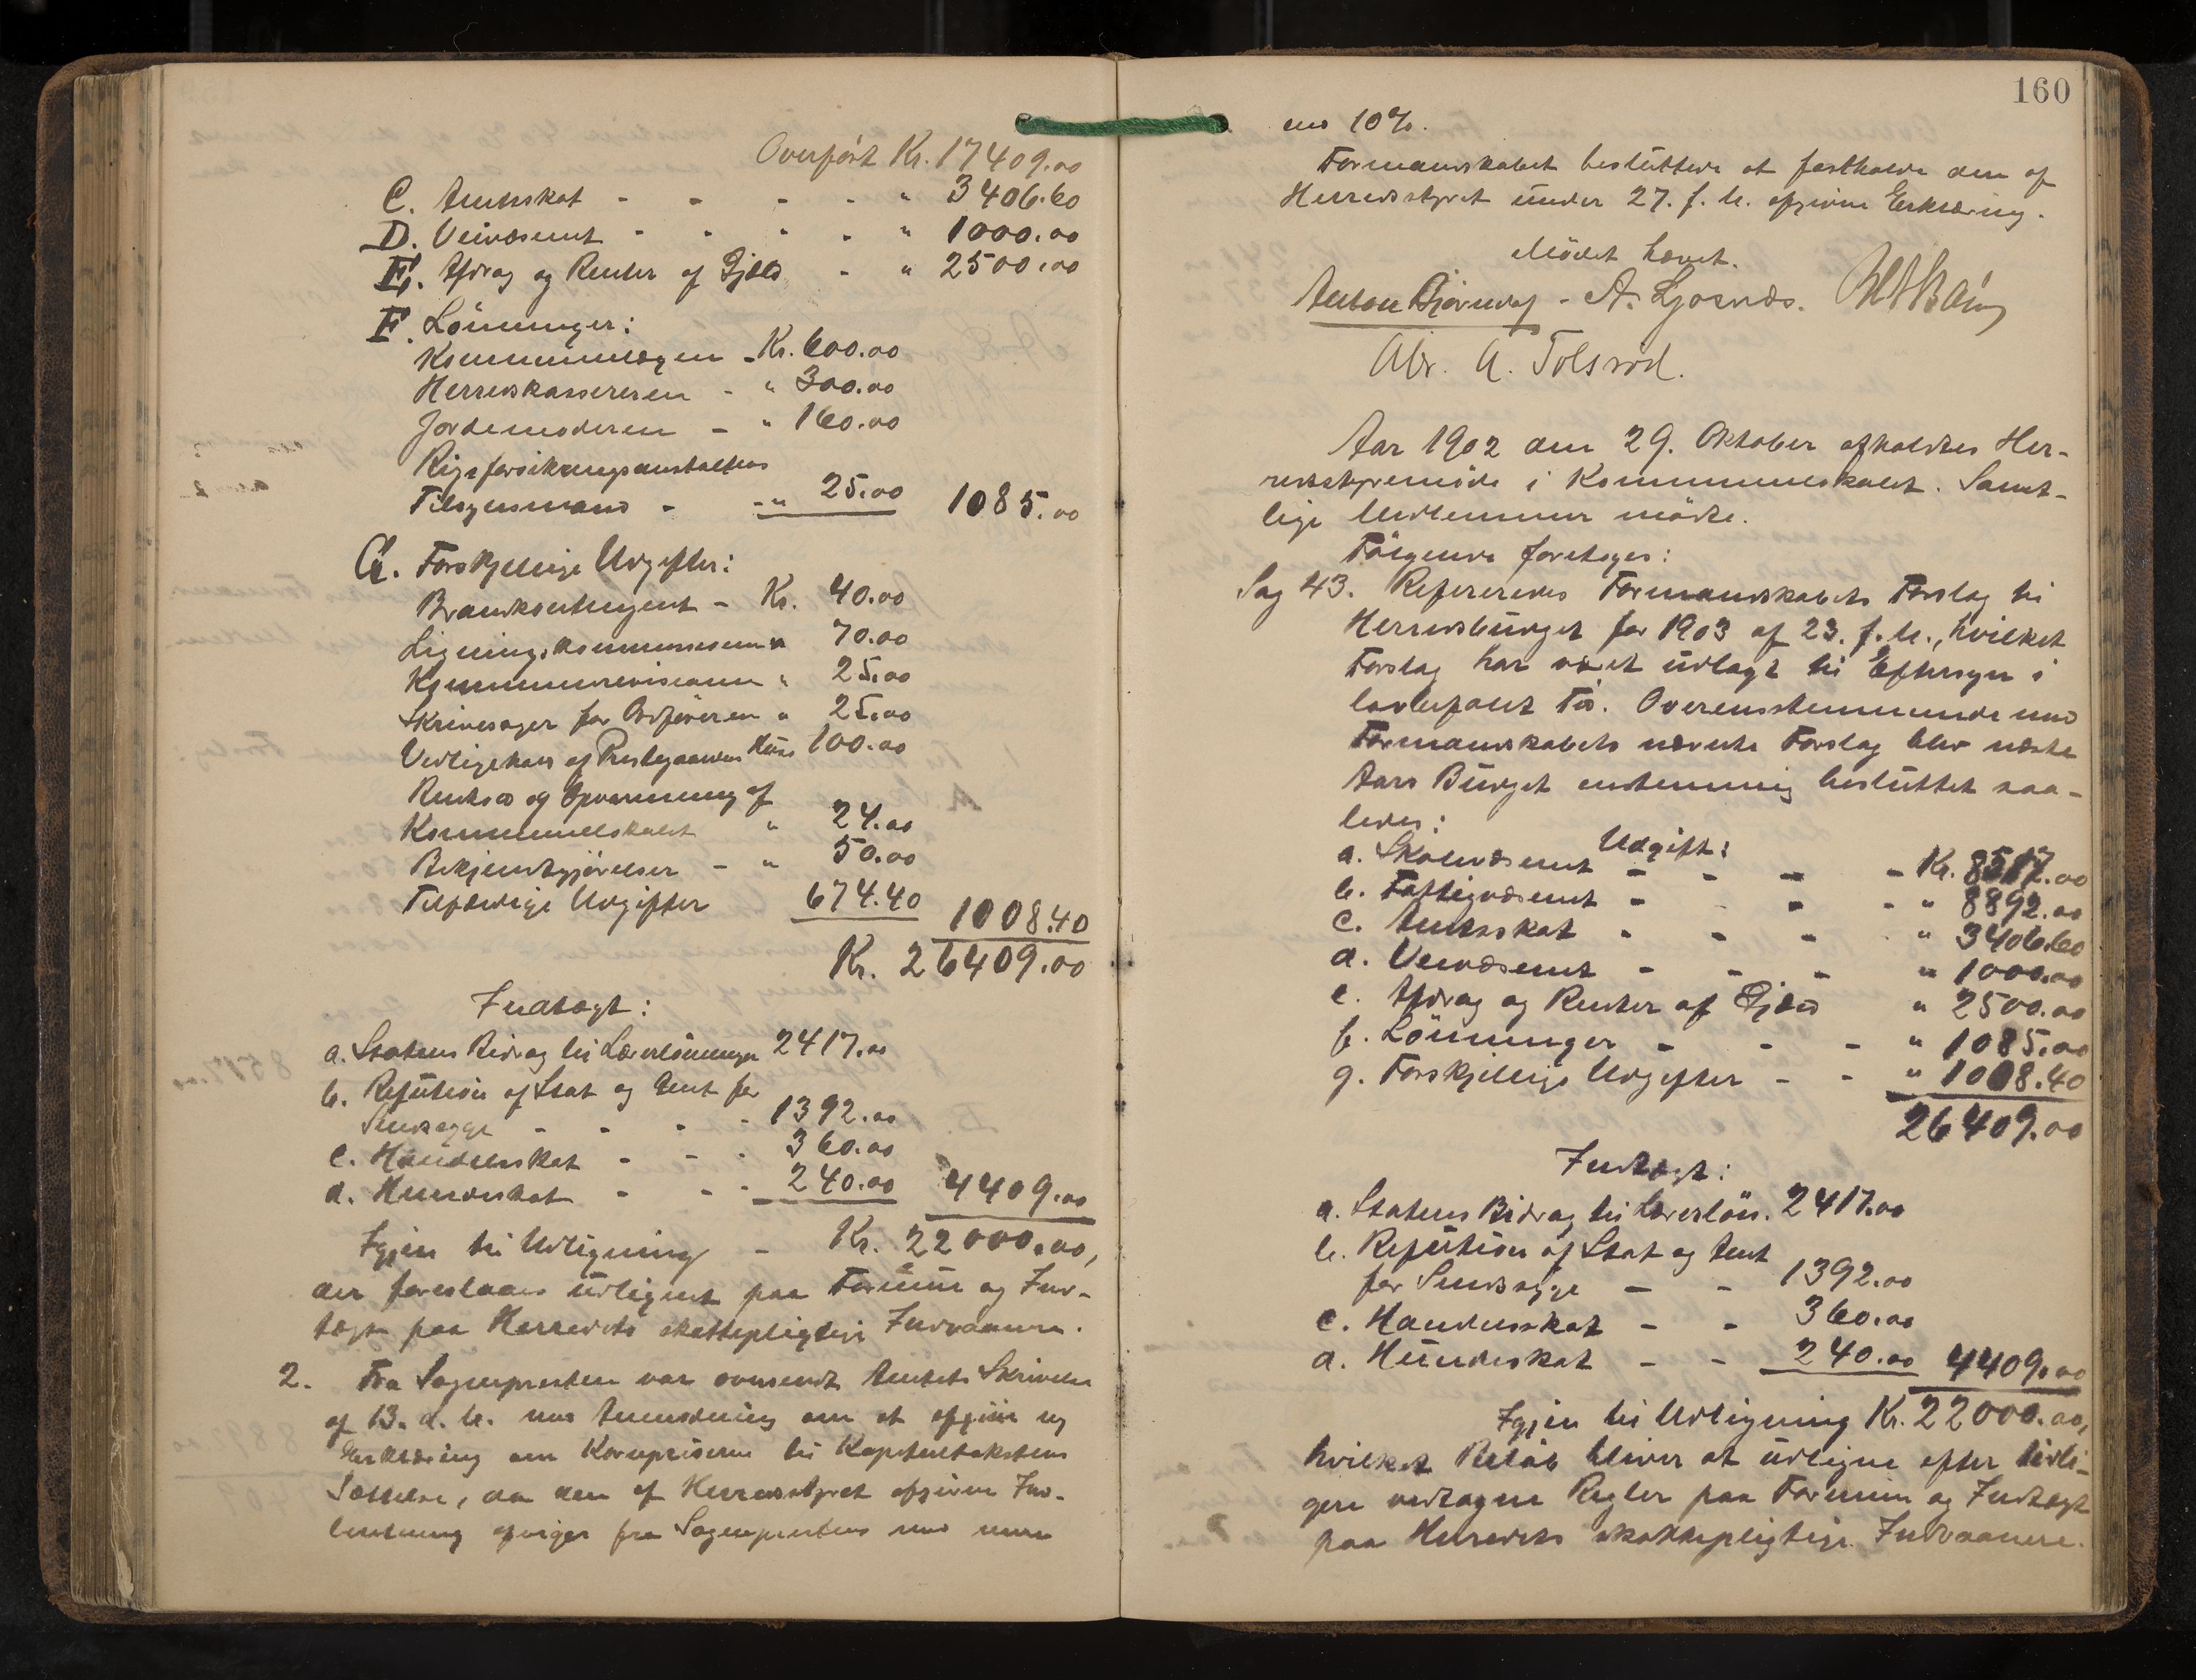 Overført Kr. 17409.00
C. Amtsskat - - - - " 3406.60
D. Veivæsenet - - - - " 1000.00
E. Afdrag og Renter af Gjæld - " 2500.00
F. Lönninger:
Kommunelægen - Kr. 600.00
Herredskassereren - " 300.00
Jordemoderen - " 160.00
Rigsforsikringsanstaltens
Tilsynsmand - - " 25.00 1085.00
G. Forskjellige Udgifter:
Brandkontingent - Kr. 40.00
Ligningskommissionen " 70.00
Kommunerevisionen " 25.00
Skrivesager for Ordføreren " 25.00
Vedligehold af Prestegaardens Huse 100.00
Renhold og Opvarmning af
Kommunelokalet " 24.00
Bekjendtgjørelser - " 50.00
Tilfældige Udgifter 674.40 1008.40
Kr. 26409.00
Indtægt:
a. Statens Bidrag til Lærerlönninger 2417.00
b. Refusion af Stat og Amt for
Sindssyge - - - - 1392.00
c. Handelsskat - - - 360.00
d. Hundeskat - - - 240.00 4409.00
Igjen til Udligning - Kr. 22000.00,
der foreslaaes udlignet paa Formue og Ind-
tægt paa Herredets skattepligtige Indvaanere.
2. Fra Sognepresten var oversendt Amtets Skrivelse
af 13. d. M. med Anmodning om at afgive ny
Erklæring om Kornpriserne til Kapiteltakstens
Sættelse, da den af Herredsstyret afgivne Ind-
beretning afviger fra Sogneprestens med mere
160
end 10%.
Formandskabet besluttede at fastholde den af
Herredsstyret under 27. f. M. afgivne Erklæring.
Mödet hævet.
Anton - A. Ljosnæs.
Abr. A. Tolsrød.
Aar 1902 den 29. Oktober afholdtes Her-
redsstyremöde i Kommunelokalet. Samt-
lige Medlemmer mödte.
Fölgende foretoges:
Sag 43. Refereredes Formandskabets Forslag til
Herredsbudget for 1903 af 23. f. M., hvilket
Forslag har været udlagt til Eftersyn i
lovbefalet Tid. Overensstemmende med
Formandskabets nævnte Forslag blev næste
Aars Budget enstemmig besluttet saa-
ledes:
Udgift:
a. Skolevæsenet - - - - Kr. 8517.00
b. Fattigvæsenet - - - - " 8892.00
c. Amtsskat - - - " 3406.60
d. Veivæsenet - - - " 1000.00
e. Afdrag og Renter af Gjæld " 2500.00
f. Lönninger - - - " 1085.00
g. Forskjellige Udgifter - - " 1008.40
26409.00
Indtægt:
a. Statens Bidrag til Lærerlön. 2417.00
b. Refusion af Stat og Amt
for Sindssyge - - 1392.00
c. Handelsskat - - 360.00
d. Hundeskat - - 240.00 4409.00
Igjen til Udligning Kr. 22000.00,
hvilket Belöb bliver at udligne efter tidli-
gere vedtagne Regler paa Formue og Indtægt
paa Herredets skattepligtige Indvaanere.